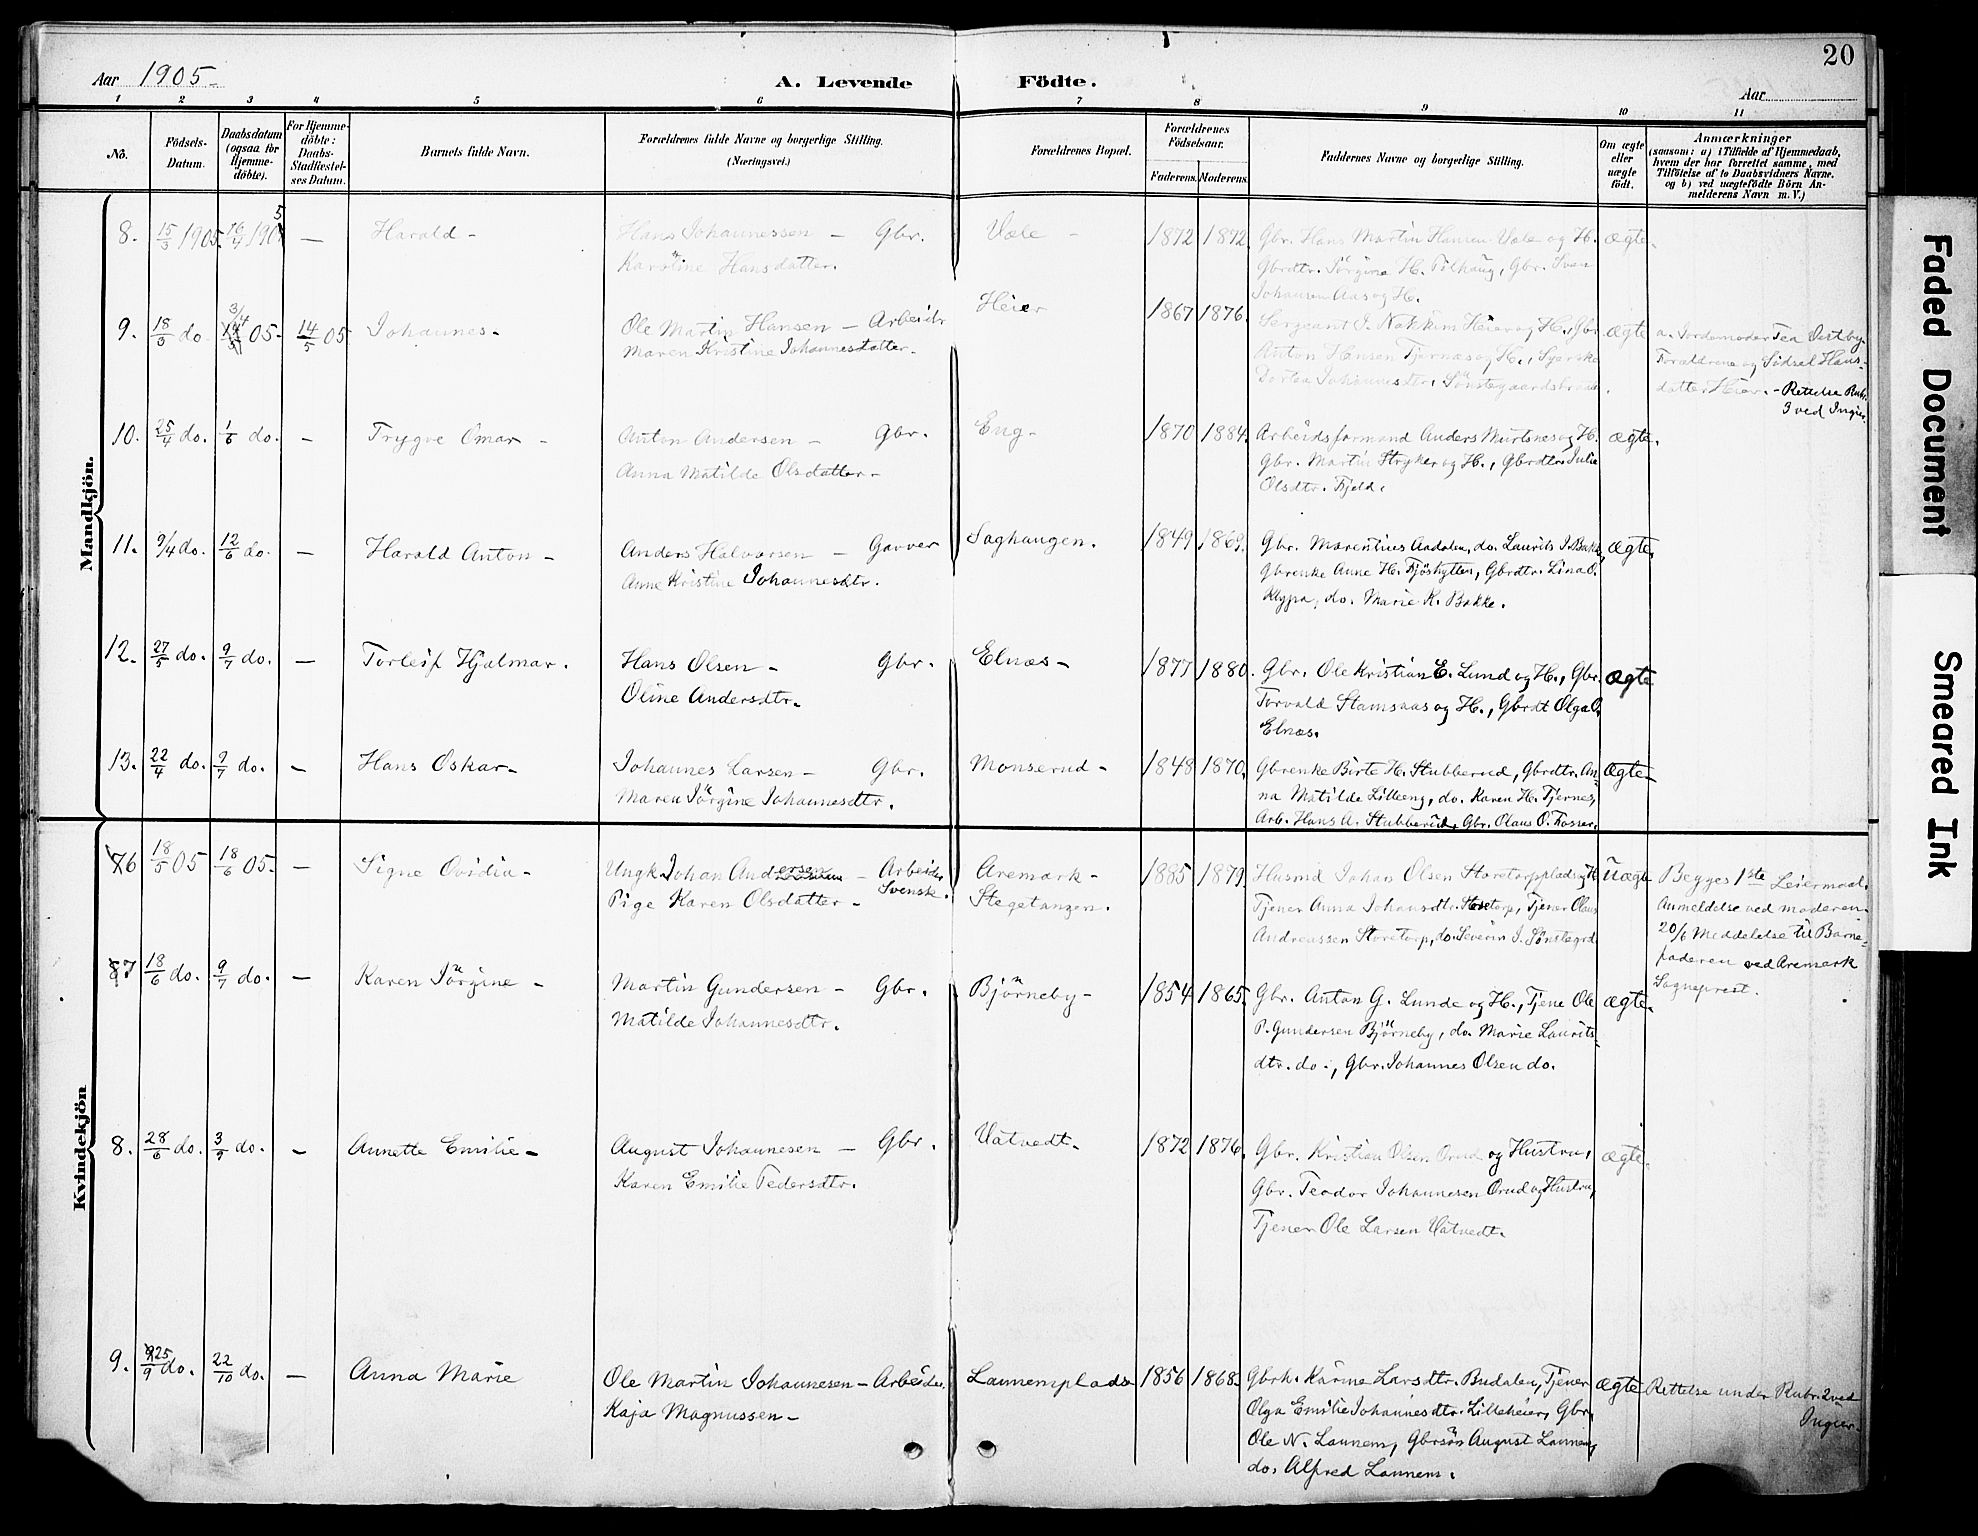 20
Aar 1905.
A. Levende Födte.
Aar
1 2 3 4 5 6 7 8 9 10 11
No.
Födsels-Datum.
Daabsdatum (ogsaa for Hjemme-döbte).
For Hjemme-döbte: Daabs-Stadfæstel-ses Datum.
Barnets fulde Navn.
Forældrenes fulde Navne og borgerlige Stilling.
(Næringsvei.)
Forældrenes Bopæl.
Forældrenes Födselsaar.
Faderens. Moderens.
Faddernes Navne og borgerlige Stilling.
Om ægte eller uægte födt.
Anmærkninger
(saasom: a) i Tilfælde af Hjemmedaab,
hvem der har forrettet samme, med
Tilföielse af to Daabsvidners Navne.
og b) ved uægtefödte Börn An-
melderens Navn m. V.)
Mandkjön.
8. 15/3 1905. 16/4 1905 — Harald - Hans Johannessen — Gbr. Vale - 1872 1872. Gbr. Hans Martin Hansen Vale og H. ægte.
Karoline Hansdatter. Gbrdtr. Jörgine H. Tilhaug, Gbr. Sven
Johansen Aas og H.
9. 18/3 do. 3/4 05- 14/5 05 Johannes. Ole Martin Hansen — Arbeidr Heier 1867 1876. Sergeant J. Nakkim Heier og H., Gbr. ægte a. Jordemoder Tea Vestby.
Maren Kristine Johannesdatter. Anton Hansen Tjernæs og H., Syerske Forældrene og Sidsel Hans-
Dortea Johannesdtr. Sönstegaardsbraaten. datter Heier. - Rettelse Rubr.
3 ved Ingier.
10. 25/4 do. 1/6 do. - Trygve Omar - Anton Andersen — Gbr. Eng- 1870 1884. Arbeidsformand Anders Murtnes og H. ægte.
Anna Matilde Olsdatter - Gbr. Martin Stryker og H., Gbrdtr. Julie
Olsdtr. Fjeld.
11. 9/4 do. 12/6 do. — Harald Anton - Anders Halvorsen — Garver Saghaugen. 1849 1869. Gbr. Marentius Aadalen, do. Laurits J. Bakke, ægte.
Anne Kristine Johannesdtr. Gbrenke Anne H. Fjöshytten, Gbrdtr. Lina O.
Klypa, do. Marie K. Bakke.
12. 27/5 do. 9/7 do. — Torleif Hjalmar. Hans Olsen - Gbr. Elnæs - 1877 1880. Gbr. Ole Kristian E. Lund og H., Gbr. ægte
Oline Andersdtr. Torvald Stamsaas og H., Gbrdt Olga O.
Elnæs.
13. 22/4 do. 9/7 do. - Hans Oskar - Johannes Larsen - Gbr. Monserud - 1848 1870. Gbrenke Birte H. Stubberud, Gbrdtr. An- ægte
Maren Jörgine Johannesdtr. na Matilde Lilleeng, do. Karen H. Tjernes,
Arb. Hans A. Stubberud, Gbr. Olaus O. Fosser.
Kvindekjön
6 18/5 05 18/6 05 — Signe Ovidia - Ungk. Johan Andersen — Arbeider Aremark - 1885 1879. Husmd Johan Olsen Storetorpplads og H. Uægte Begges 1ste Leiermaal.
Pige Karen Olsdatter - Svensk. Stegetangen. Tjener Anna Johansdtr. Storetorp, Tjener Olaus Anmeldelse ved moderen.
Andreassen Storetorp, do. Severin J. Sönstegrd. 20/6 Meddelelse til Barne-
faderen ved Aremark
Sogneprest.
7 18/6 do. 9/7 do. — Karen Jörgine - Martin Gundersen - Gbr. Björneby - 1854 1865. Gbr. Anton G. Lunde og H., Tjene Ole ægte.
Matilde Johannesdtr. P. Gundersen Björneby, do. Marie Laurits-
dtr. do., Gbr. Johannes Olsen do.
8. 28/6 do. 3/9 do. - Annette Emilie - August Johannesen — Gbr. Vatvedt. 1872 1876. Gbr. Kristian Olsen Orud og Hustru, ægte.
Karen Emilie Pedersdtr. Gbr. Teodor Johannesen Orud og Hustru,
Tjener Ole Larsen Vatvedt.
9. 25/9 do. 22/10 do. — Anna Marie Ole Martin Johannesen - Arbeider. Launemplads 1856 1868. Gbrk. Karine Larsdtr. Budalen, Tjener ægte Rettelse under Rubr. 2 ved
Kaja Magnussen - Olga Emilie Johannesdtr. Lilleheier, Gbr. Ingier.
Ole N. Launem, Gbrsön August Launem,
do. Alfred Launem.
Faded Document
Smeared Ink